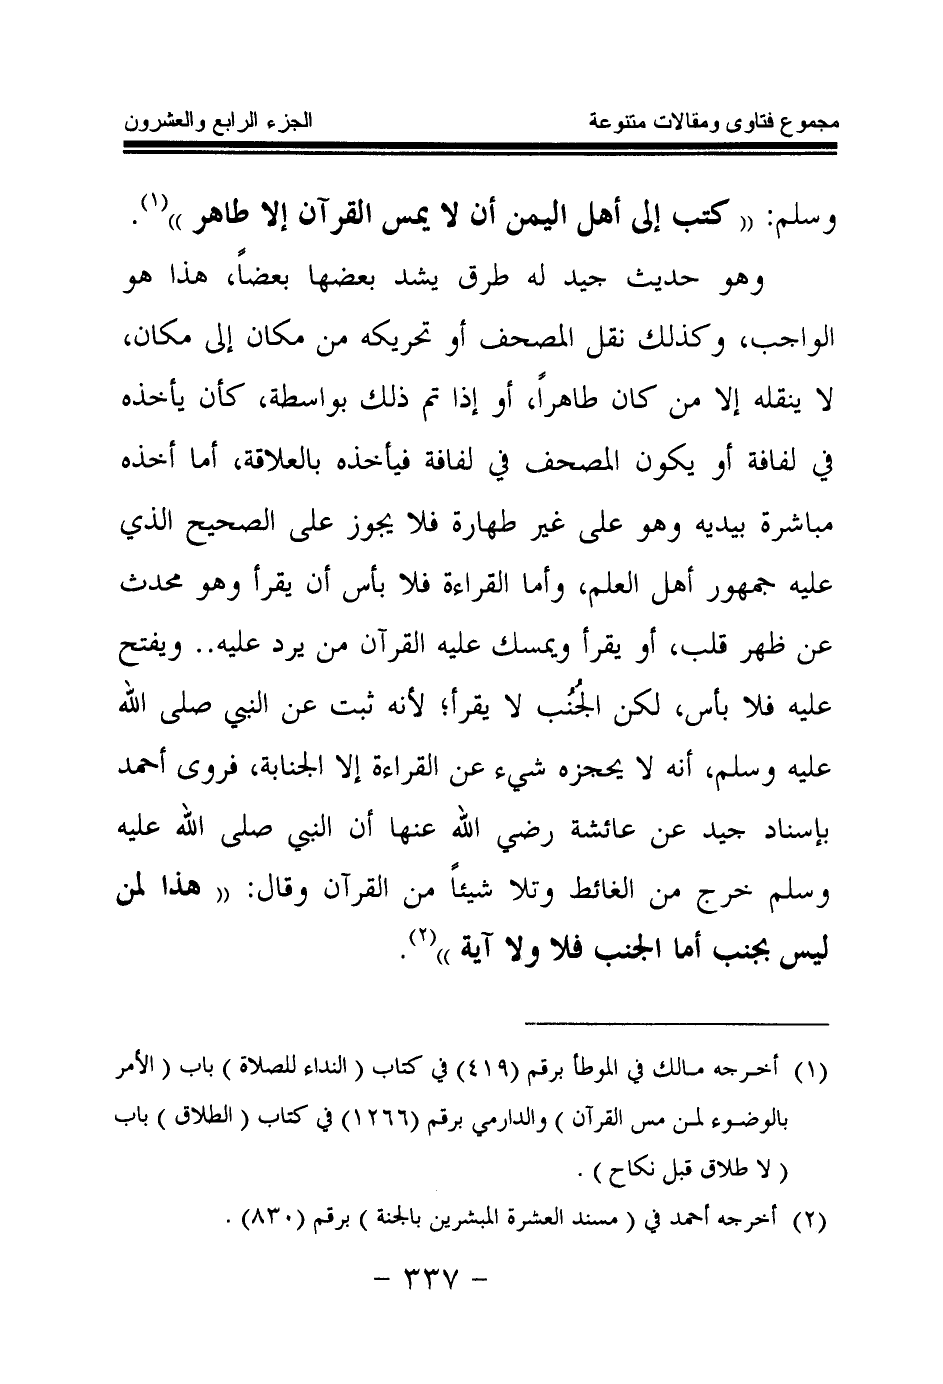 مجموع فتاوى ومقالات متنوعة الجزء الرابع والعشرون
وسلم: (( كتب إلى أهل اليمن أن لا يمس القرآن إلا طاهر ))(١).
وهو حديث جيد له طرق يشد بعضها بعضاً، هذا هو
الواجب، وكذلك نقل المصحف أو تحريكه من مكان إلى مكان،
لا ينقله إلا من كان طاهراً، أو إذا تم ذلك بواسطة، كأن يأخذه
في لفافة أو يكون المصحف في لفافة فيأخذه بالعلاقة، أما أخذه
مباشرة بيديه وهو على غير طهارة فلا يجوز على الصحيح الذي
عليه جمهور أهل العلم، وأما القراءة فلا بأس أن يقرأ وهو محدث
عن ظهر قلب، أو يقرأ ويمسك عليه القرآن من يرد عليه.. ويفتح
عليه فلا بأس، لكن الجُنُب لا يقرأ؛ لأنه ثبت عن النبي صلى الله
عليه وسلم، أنه لا يحجزه شيء عن القراءة إلا الجنابة، فروى أحمد
بإسناد جيد عن عائشة رضي الله عنها أن النبي صلى الله عليه
وسلم خرج من الغائط وتلا شيئاً من القرآن وقال: (( هذا لمن
ليس بجنب أما الجنب فلا ولا آية ))(٢).
(١) أخرجه مالك في الموطأ برقم (٤١٩) في كتاب ( النداء للصلاة ) باب ( الأمر
بالوضوء لمن مس القرآن ) والدارمي برقم (١٢٦٦) في كتاب ( الطلاق ) باب
( لا طلاق قبل نكاح ) .
(٢) أخرجه أحمد في ( مسند العشرة المبشرين بالجنة ) برقم (٨٣٠) .
- ٣٣٧ -